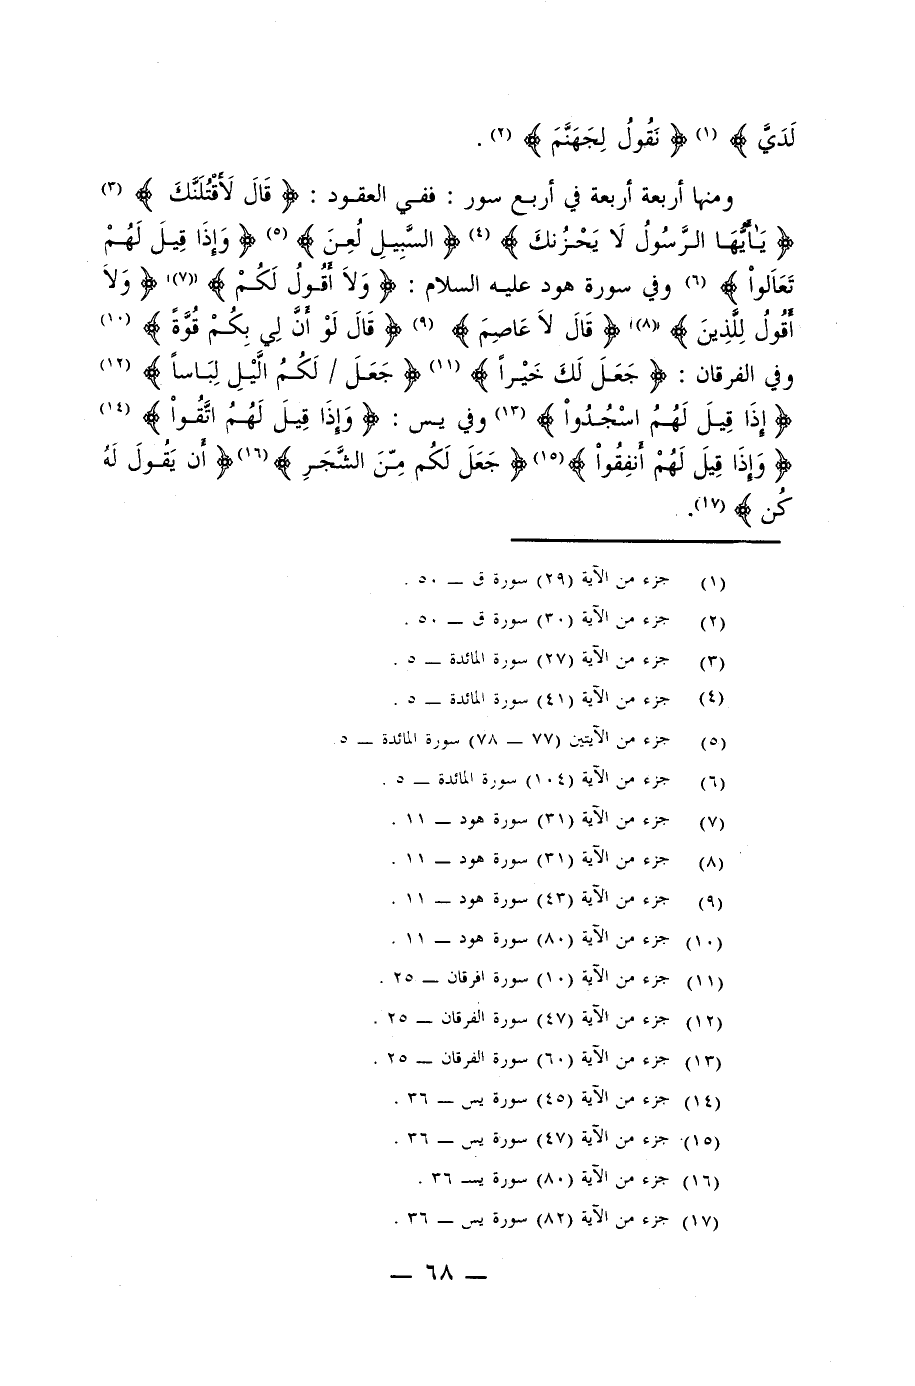 لَدَيَّ ﴾ (١) ﴿ نَقُولُ لِجَهَنَّمَ ﴾ (٢) .
ومنها أربعة أربعة في أربع سور : ففي العقود : ﴿ قَالَ لَأَقْتُلَنَّكَ ﴾ (٣)
﴿ يَٰأَيُّهَا الرَّسُولُ لَا يَحْزُنكَ ﴾ (٤) ﴿ السَّبِيلِ لُعِنَ ﴾ (٥) ﴿ وَإِذَا قِيلَ لَهُمْ
تَعَالَواْ ﴾ (٦) وفي سورة هود عليه السلام : ﴿ وَلاَ أَقُولُ لَكُمْ ﴾ (٧) ﴿ وَلاَ
أَقُولُ لِلَّذِينَ ﴾ (٨) ﴿ قَالَ لاَ عَاصِمَ ﴾ (٩) ﴿ قَالَ لَوْ أَنَّ لِي بِكُمْ قُوَّةً ﴾ (١٠)
وفي الفرقان : ﴿ جَعَلَ لَكَ خَيْراً ﴾ (١١) ﴿ جَعَلَ / لَكُمُ الَّيْلِ لِبَاساً ﴾ (١٢)
﴿ إِذَا قِيلَ لَهُمُ اسْجُدُواْ ﴾ (١٣) وفي يس : ﴿ وَإِذَا قِيلَ لَهُمُ اتَّقُواْ ﴾ (١٤)
﴿ وَإِذَا قِيلَ لَهُمْ أَنفِقُواْ ﴾ (١٥) ﴿ جَعَلَ لَكُم مِّنَ الشَّجَرِ ﴾ (١٦) ﴿ أَن يَقُولَ لَهُ
كُن ﴾ (١٧).
(١) جزء من الآية (٢٩) سورة ق ــ ٥٠ .
(٢) جزء من الآية (٣٠) سورة ق ــ ٥٠ .
(٣) جزء من الآية (٢٧) سورة المائدة ــ ٥ .
(٤) جزء من الآية (٤١) سورة المائدة ــ ٥ .
(٥) جزء من الآيتين (٧٧ ــ ٧٨) سورة المائدة ــ ٥
(٦) جزء من الآية (١٠٤) سورة المائدة ــ ٥ .
(٧) جزء من الآية (٣١) سورة هود ــ ١١ .
(٨) جزء من الآية (٣١) سورة هود ــ ١١ .
(٩) جزء من الآية (٤٣) سورة هود ــ ١١ .
(١٠) جزء من الآية (٨٠) سورة هود ــ ١١ .
(١١) جزء من الآية (١٠) سورة افرقان ــ ٢٥ .
(١٢) جزء من الآية (٤٧) سورة الفرقان ــ ٢٥ .
(١٣) جزء من الآية (٦٠) سورة الفرقان ــ ٢٥ .
(١٤) جزء من الآية (٤٥) سورة يس ــ ٣٦ .
(١٥) جزء من الآية (٤٧) سورة يس ــ ٣٦ .
(١٦) جزء من الآية (٨٠) سورة يســ ٣٦ .
(١٧) جزء من الآية (٨٢) سورة يس ــ ٣٦ .
ــ ٦٨ ــ